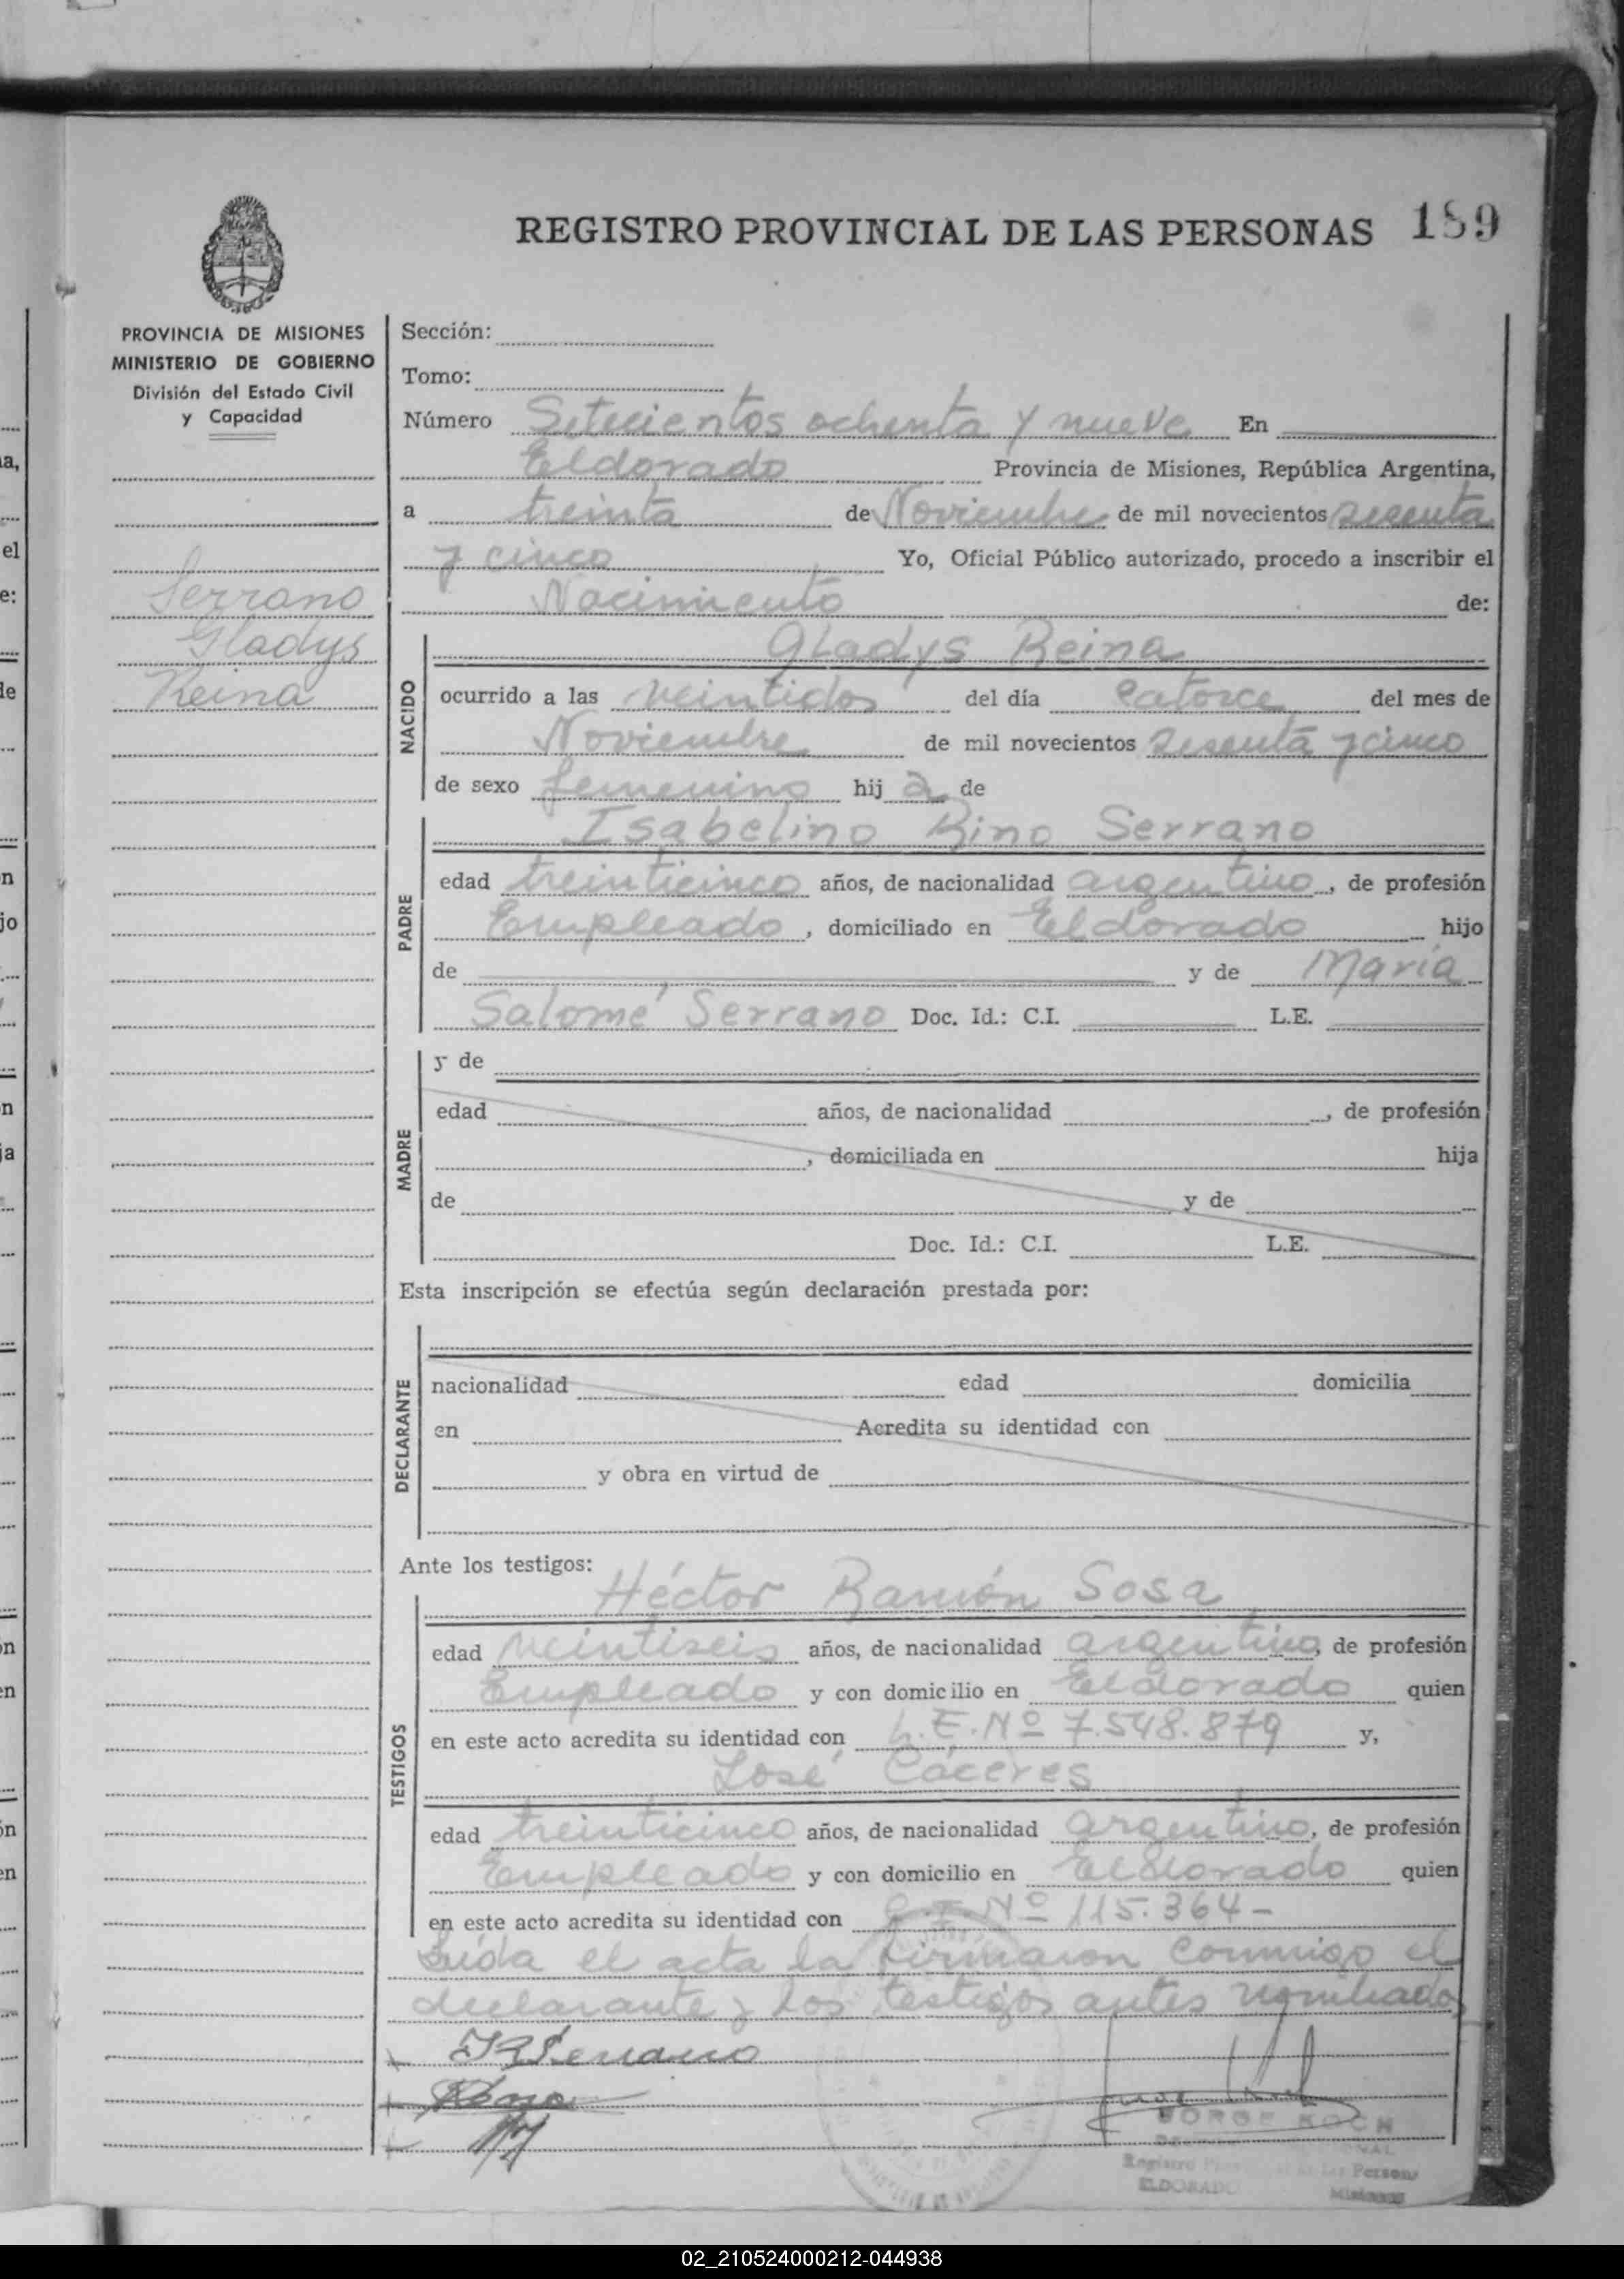 REGISTRO PROVINCIAL DE LAS PERSONAS 189
PROVINCIA DE MISIONES
MINISTERIO DE GOBIERNO
División del Estado Civil
y Capacidad
Serrano
Gladys
Reina
Sección:
Tomo:
Número Setecientos ochenta y nueve En
Eldorado Provincia de Misiones, República Argentina,
a treinta de Noviembre de mil novecientos sesenta
y cinco Yo, Oficial Público autorizado, procedo a inscribir el
Nacimiento de:
NACIDO
Gladys Reina
ocurrido a las veintidos del día catorce del mes de
Noviembre de mil novecientos sesenta y cinco
de sexo femenino hij a de
PADRE
Isabelino Rino Serrano
edad treinticinco años, de nacionalidad argentino, de profesión
Empleado, domiciliado en Eldorado hijo
de y de María
Salomé Serrano Doc. Id.: C.I. L.E.
MADRE
y de
edad años, de nacionalidad , de profesión
, domiciliada en hija
de y de
Doc. Id.: C.I. L.E.
Esta inscripción se efectúa según declaración prestada por:
DECLARANTE
nacionalidad edad domicilia
en Acredita su identidad con
y obra en virtud de
Ante los testigos:
TESTIGOS
Héctor Ramón Sosa
edad veintiseis años, de nacionalidad argentino, de profesión
Empleado y con domicilio en Eldorado quien
en este acto acredita su identidad con L.E. Nº 7.548.879 y,
José Cáceres
edad treinticinco años, de nacionalidad argentino, de profesión
Empleado y con domicilio en Eldorado quien
en este acto acredita su identidad con Nº 115.364-
Leída el acta la firmaron conmigo el
declarante y los testigos antes nombrados
IRSerrano
JORGE KOCH
Registro
ELDORADO Misiones
02_210524000212-044938